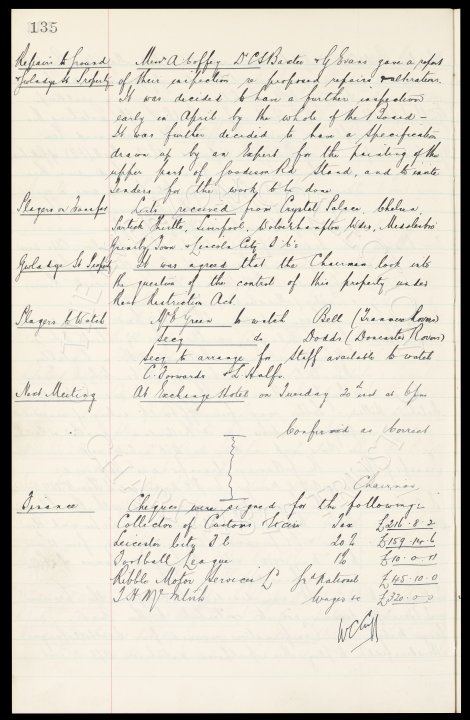 135
Repairs to Ground Messrs A Coffey Dr C S Baxter & G Evans gave a report
& Gwladys St Property of their inspection re proposed repairs & alterations.
It was decided to have a further inspection
early in April by the whole of the Board —
It was further decided to have a specification
drawn up by an Expert for the painting of the
upper part of Goodison Rd Stand, and to invite
Tenders for the work to be done
Players on Transfer Lists received from Crystal Palace, Chelsea
Partick Thistle, Liverpool, Wolverhampton Wdrs, Middlesbro
Grimsby Town & Lincoln City F.C's
Gwladys St Property It was agreed that the Chairman look into
the question of the control of this property under
Rent Restriction Act
Players to Watch Mr Green to watch Bell (Tranmere Rovers)
Secy do Dodds (Doncaster Rovers)
Secy to arrange for Staff available to watch
C. Forwards & L Halfs.
Next Meeting At Exchange Hotel on Tuesday 20th inst at 6pm
Confirmed as Correct
Chairman
Finance Cheques were signed for the following:
Collector of Customs & Excise Tax £216.8.2
Leicester City F.C. 20% £159.14.6
Football League 1% £10.0.11
Ribble Motor Services Ld Grd National £45.10.0
T. H. McIntosh Wages &c £320.0.0
W C Cuff